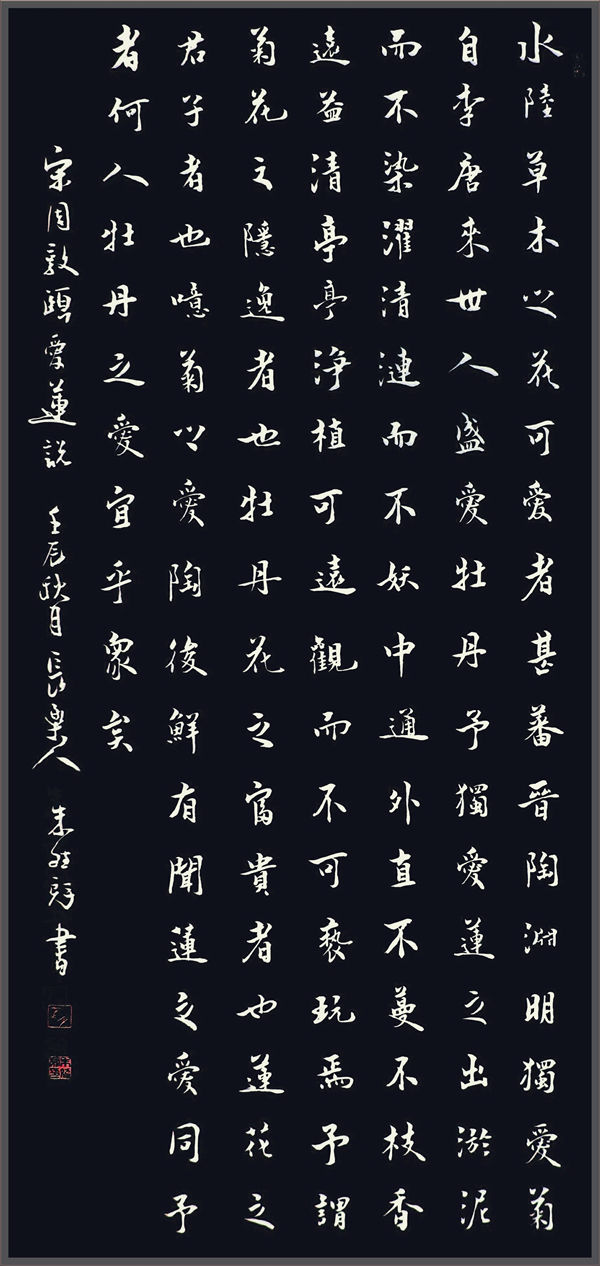 水陸草木之花可愛者甚蕃晉陶淵明獨愛菊
自李唐來世人盛愛牡丹予獨愛蓮之出淤泥
而不染濯清漣而不妖中通外直不蔓不枝香
遠益清亭亭淨植可遠觀而不可褻玩焉予謂
菊花之隱逸者也牡丹花之富貴者也蓮花之
君子者也噫菊之愛陶後鮮有聞蓮之愛同予
者何人牡丹之愛宜乎眾矣
宋周敦頤愛蓮說 壬辰秋月長樂人朱書